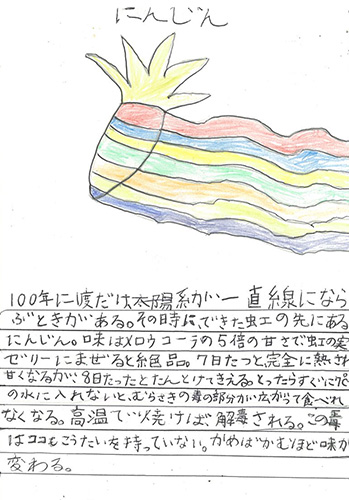 にんじん
100年に一度だけ太陽系が一直線になら
ぶときがある。その時に、できた虹の先にある
にんじん。味はメロウコーラの5倍の甘さで虹の実
ゼリーにまぜると絶品。7日たつと、完全に熱され
甘くなるが、8日たったとたんとけてきえる。とったらすぐに
の水に入れないと、むらさきの毒の部分が広がって食べれ
なくなる。高温で焼けば、解毒される。この毒
はココもこうたいを持っていない。かめばかむほど味が
変わる。